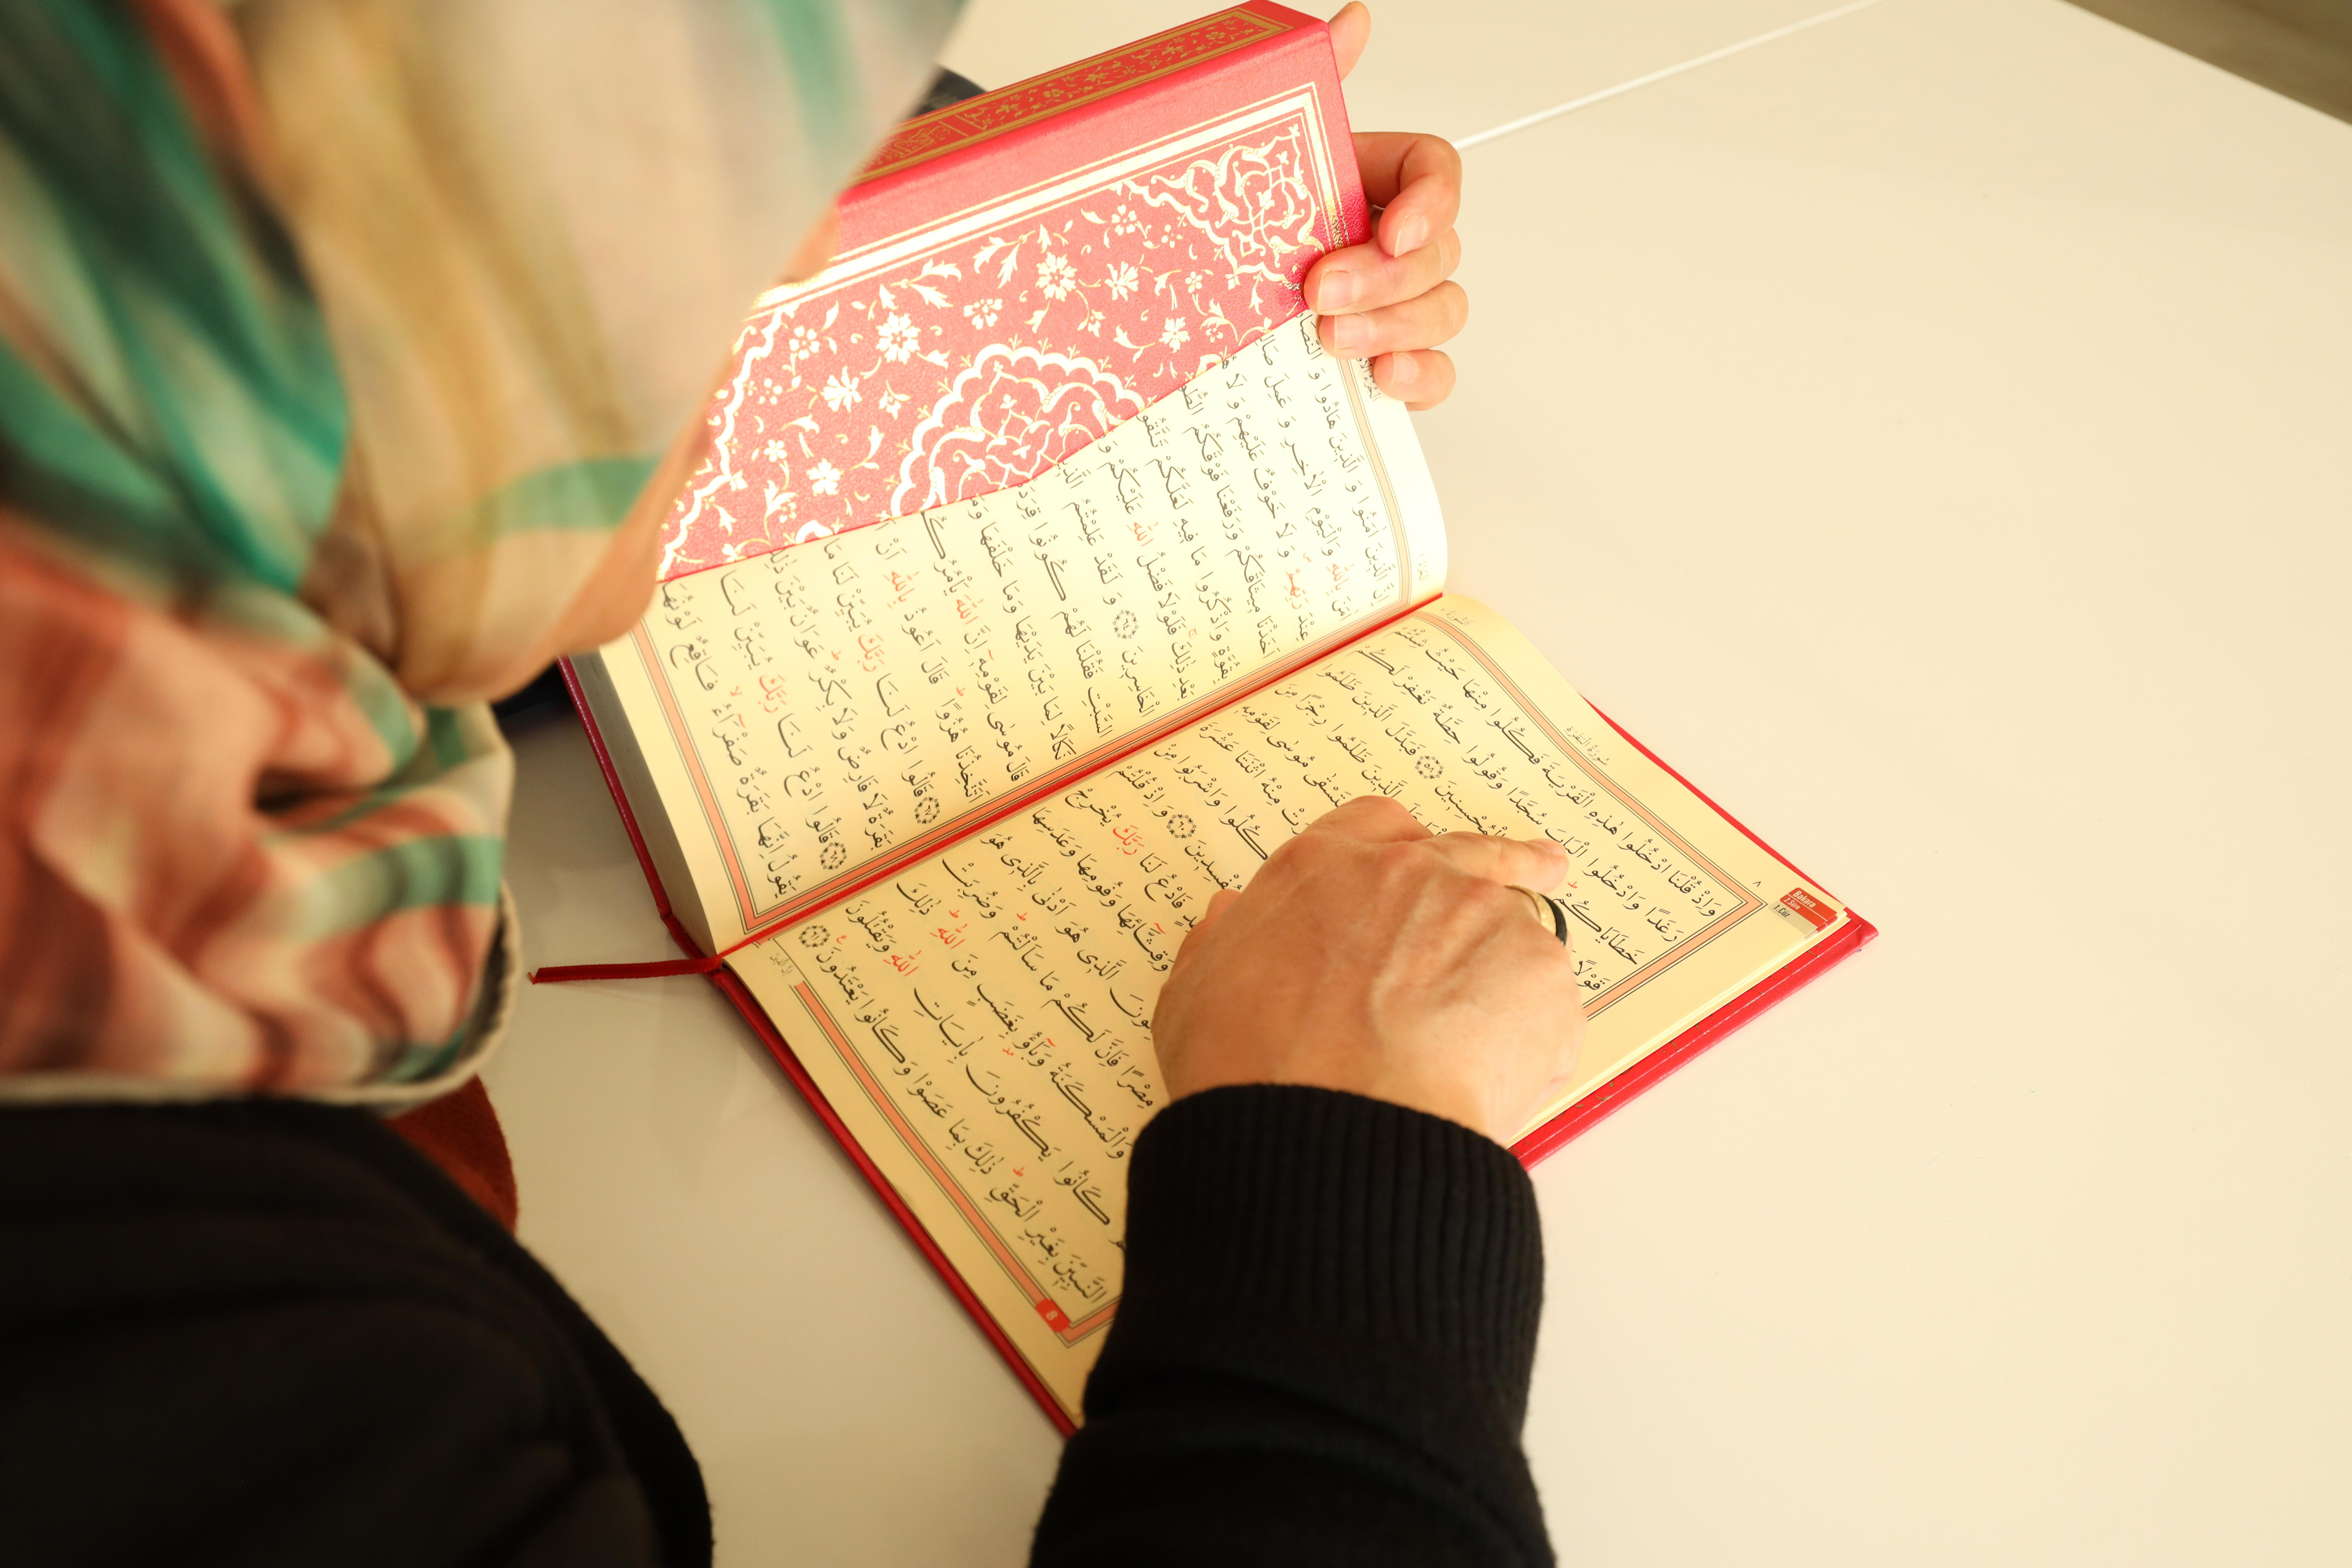 سُورَةُ الْبَقَرَةِ
٨
Bakara
2.Sûre
1.Cüz
وَاِذْ قُلْنَا ادْخُلُوا هٰذِهِ الْقَرْيَةَ فَكُلُوا مِنْهَا حَيْثُ شِئْتُمْ
رَغَدًا وَادْخُلُوا الْبَابَ سُجَّدًا وَقُولُوا حِطَّةٌ نَغْفِرْ لَكُمْ
خَطَايَاكُمْۜ الْمُحْسِنِينَ ﴿٥٨﴾ فَبَدَّلَ الَّذِينَ ظَلَمُوا
قَوْلًا الَّذِينَ ظَلَمُوا رِجْزًا مِنَ
مُوسٰى لِقَوْمِهِ
مِنْهُ اثْنَتَا عَشْرَةَ
كُلُوا وَاشْرَبُوا مِنْ
﴿٦٠﴾ وَاِذْ قُلْتُمْ
فَادْعُ لَنَا رَبَّكَ يُخْرِجْ
وَقِثَّٓائِهَا وَفُومِهَا وَعَدَسِهَا
الَّذِي هُوَ اَدْنٰى بِالَّذِي هُوَ
مِصْرًا فَاِنَّ لَكُمْ مَا سَاَلْتُمْۜ وَضُرِبَتْ
وَالْمَسْكَنَةُ وَبَٓاؤُ بِغَضَبٍ مِنَ اللّٰهِۜ ذٰلِكَ
كَانُوا يَكْفُرُونَ بِاٰيَاتِ اللّٰهِ وَيَقْتُلُونَ
النَّبِيِّنَ بِغَيْرِ الْحَقِّۜ ذٰلِكَ بِمَا عَصَوْا وَكَانُوا يَعْتَدُونَ ﴿٦١﴾
8
اِنَّ الَّذِينَ اٰمَنُوا وَالَّذِينَ هَادُوا
اٰمَنَ بِاللّٰهِ وَالْيَوْمِ الْاٰخِرِ وَعَمِلَ
عِنْدَ رَبِّهِمْ وَلَا خَوْفٌ عَلَيْهِمْ وَلَا
اَخَذْنَا مِيثَاقَكُمْ وَرَفَعْنَا فَوْقَكُمُ
بِقُوَّةٍ وَاذْكُرُوا مَا فِيهِ لَعَلَّكُمْ
بَعْدِ ذٰلِكَ فَلَوْلَا فَضْلُ اللّٰهِ عَلَيْكُمْ
الْخَاسِرِينَ ﴿٦٤﴾ وَلَقَدْ عَلِمْتُمُ
السَّبْتِ فَقُلْنَا لَهُمْ كُونُوا
نَكَالًا لِمَا بَيْنَ يَدَيْهَا وَمَا خَلْفَهَا
قَالَ مُوسٰى لِقَوْمِهِٓ اِنَّ اللّٰهَ يَاْمُرُكُمْ
اَتَتَّخِذُنَا هُزُوًاۜ قَالَ اَعُوذُ بِاللّٰهِ اَنْ
﴿٦٧﴾ قَالُوا ادْعُ لَنَا رَبَّكَ يُبَيِّنْ لَنَا مَا
بَقَرَةٌ لَا فَارِضٌ وَلَا بِكْرٌۜ عَوَانٌ بَيْنَ ذٰلِكَ
﴿٦٨﴾ قَالُوا ادْعُ لَنَا رَبَّكَ يُبَيِّنْ لَنَا
يَقُولُ اِنَّهَا بَقَرَةٌ صَفْرَٓاءُ فَاقِعٌ لَوْنُهَا